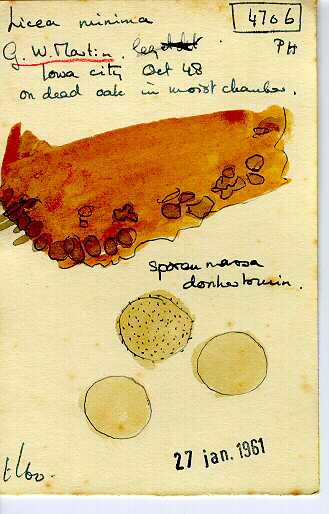 Licea minima
4706
G. W. Martin. leg.
PH
Iowa city Oct 48
on dead oak in moist chamber.
sporenmassa
donkerbruin.
27 jan. 1961